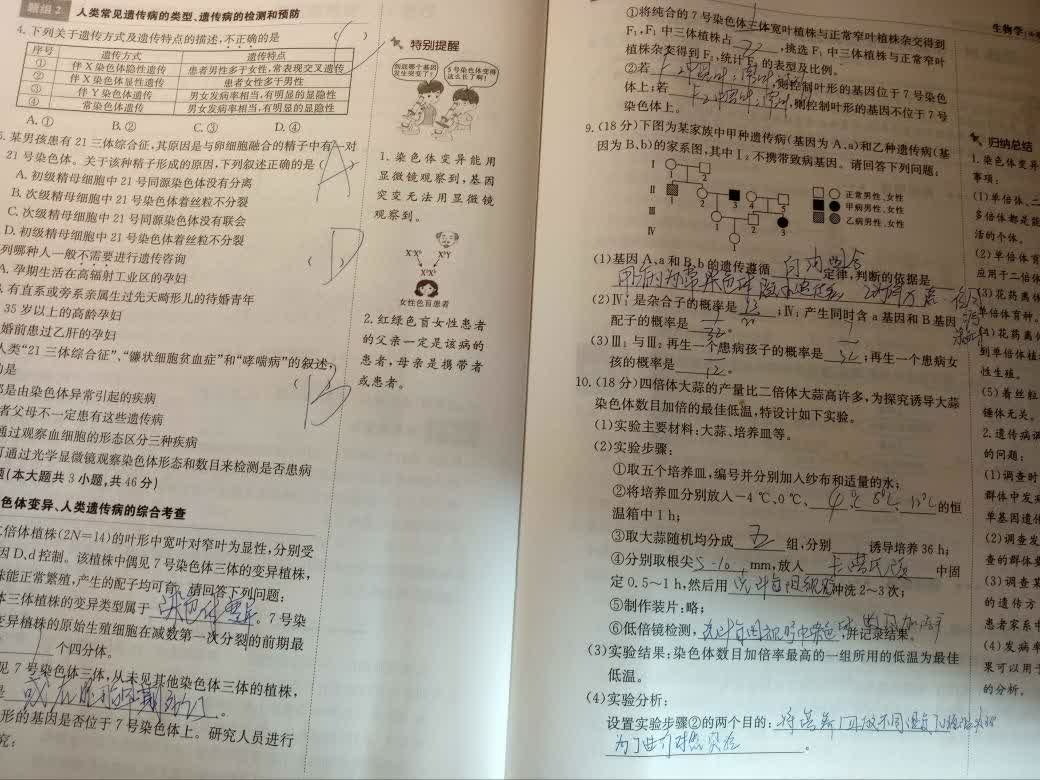 题组2 人类常见遗传病的类型、遗传病的检测和预防
4. 下列关于遗传方式及遗传特点的描述,不正确的是 ( )
序号 遗传方式 遗传特点
① 伴X染色体隐性遗传 患者男性多于女性,常表现交叉遗传
② 伴X染色体显性遗传 患者女性多于男性
③ 伴Y染色体遗传 男女发病率相当,有明显的显隐性
④ 常染色体遗传 男女发病率相当,有明显的显隐性
A. ① B. ② C. ③ D. ④
某男孩患有21三体综合征,其原因是与卵细胞融合的精子中有一对
21号染色体。关于该种精子形成的原因,下列叙述正确的是( A )
A. 初级精母细胞中21号同源染色体没有分离
B. 次级精母细胞中21号染色体着丝粒不分裂
C. 次级精母细胞中21号同源染色体没有联会
D. 初级精母细胞中21号染色体着丝粒不分裂
列哪种人一般不需要进行遗传咨询 ( D )
A. 孕期生活在高辐射工业区的孕妇
有直系或旁系亲属生过先天畸形儿的待婚青年
35岁以上的高龄孕妇
婚前患过乙肝的孕妇
人类“21三体综合征”、“镰状细胞贫血症”和“哮喘病”的叙述,
的是 ( B )
都是由染色体异常引起的疾病
者父母不一定患有这些遗传病
通过观察血细胞的形态区分三种疾病
可通过光学显微镜观察染色体形态和数目来检测是否患病
题(本大题共3小题,共46分)
色体变异、人类遗传病的综合考查
二倍体植株(2N=14)的叶形中宽叶对窄叶为显性,分别受
因D、d控制。该植株中偶见7号染色体三体的变异植株,
株能正常繁殖,产生的配子均可育。请回答下列问题:
体三体植株的变异类型属于 染色体变异 。7号染
变异植株的原始生殖细胞在减数第一次分裂的前期最
个四分体。
见7号染色体三体,从未见其他染色体三体的植株,
是 。
形的基因是否位于7号染色体上。研究人员进行
究:
特别提醒
到底哪个基因
发生突变了?
5号染色体变得
这么长了啊!
1. 染色体变异能用
显微镜观察到,基因
突变无法用显微镜
观察到。
XᵇXᵇ XᵇY
XᵇXᵇ
女性色盲患者
2. 红绿色盲女性患者
的父亲一定是该病的
患者,母亲是携带者
或患者。
①将纯合的7号染色体三体宽叶植株与正常窄叶植株杂交得到
F₁,F₁中三体植株占 ,挑选F₁中三体植株与正常窄叶
植株杂交得到F₂,统计F₂的表型及比例。
②若 ,则控制叶形的基因位于7号染色
体上;若 ,则控制叶形的基因不位于7号
染色体上。
9. (18分)下图为某家族中甲种遗传病(基因为A、a)和乙种遗传病(基
因为B、b)的家系图,其中Ⅰ₂不携带致病基因。请回答下列问题:
Ⅰ 1 2
Ⅱ 1 2 3 4 5
Ⅲ 1 2 3
Ⅳ 1
正常男性、女性
甲病男性、女性
乙病男性、女性
(1)基因A、a和B、b的遗传遵循 自由组合 定律,判断的依据是
(2)Ⅳ₁是杂合子的概率是 ;Ⅳ₁产生同时含a基因和B基因
配子的概率是 。
(3)Ⅲ₁与Ⅲ₂再生一个患病孩子的概率是 ;再生一个患病女
孩的概率是 。
10. (18分)四倍体大蒜的产量比二倍体大蒜高许多,为探究诱导大蒜
染色体数目加倍的最佳低温,特设计如下实验。
(1)实验主要材料:大蒜、培养皿等。
(2)实验步骤:
①取五个培养皿,编号并分别加入纱布和适量的水;
②将培养皿分别放入-4 ℃、0 ℃、 4℃ 8℃ 12℃ 的恒
温箱中1 h;
③取大蒜随机均分成 五 组,分别 诱导培养36 h;
④分别取根尖 5-10 mm,放入 卡诺氏液 中固
定0.5~1 h,然后用 冲洗2~3次;
⑤制作装片:略;
⑥低倍镜检测, ,并记录结果。
(3)实验结果:染色体数目加倍率最高的一组所用的低温为最佳
低温。
(4)实验分析:
设置实验步骤②的两个目的:
。
生物学
归纳总结
1. 染色体变异
事项:
(1)单倍体、二
多倍体都是能
活的个体。
(2)单倍体育
应用于二倍体
(3)花药离体
单倍体育种。
(4)花药离体
到单倍体植
性生殖。
(5)着丝粒
锤体无关。
2. 遗传病调
的问题:
(1)调查时
群体中发
单基因遗传
(2)调查发
查的群体要
(3)调查某
的遗传方
患者家系中
(4)发病率
果可以用于
的分析。